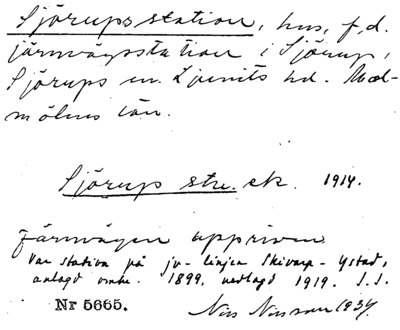 Sjörups station, hus, f.d.
järnvägsstation i Sjörup,
Sjörups sn. Ljunits hd. Mal-
möhus län.
Sjörup stn. ek. 1914.
Järnvägen uppriven
Var station på jv-linjen Skivarp-Ystad,
anlagd omkr. 1899, nedlagd 1919. S.S.
Nr 5665.
Nils Nilsson 1934